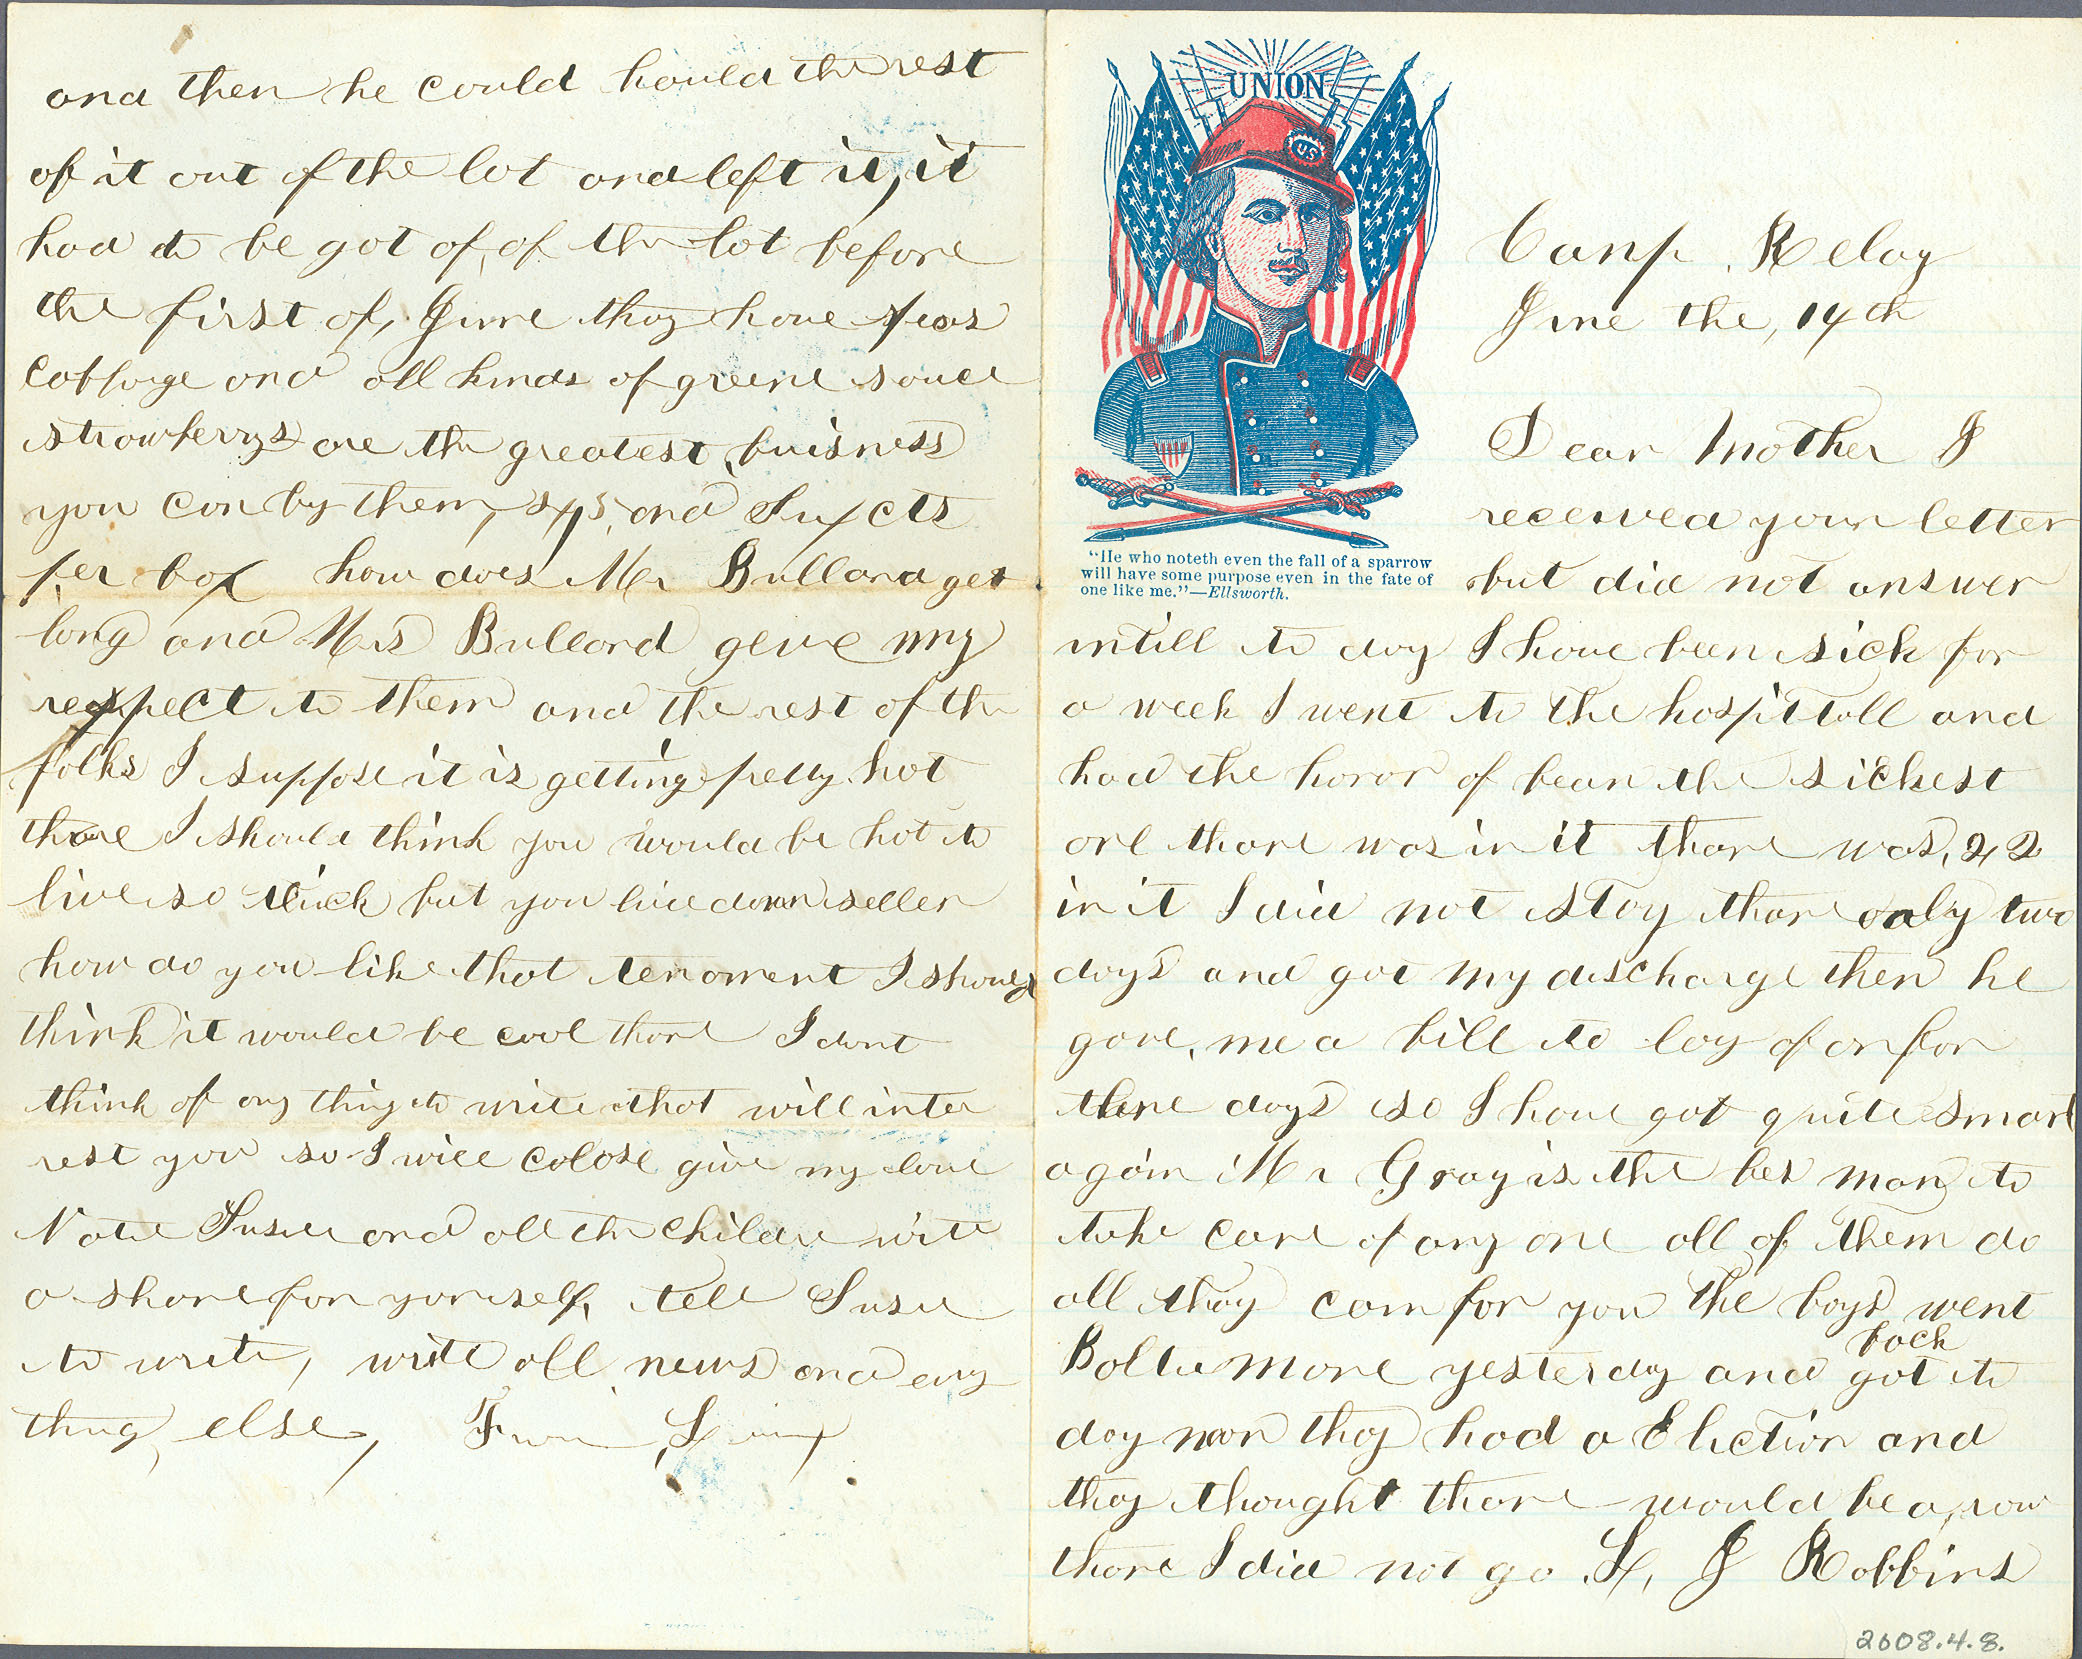 UNION
US
"He who noteth even the fall of a sparrow
will have some purpose even in the fate of
one like me."—Ellsworth.
Camp Relay
June the, 14th
Dear Mother I
received your letter
but did not answer
intill to day I have been sick for
a week I went to the hospittall and
had the honor of bean the sickest
one thare was in it thare was, 22
in it I did not stay thare only two
days and got my discharge then he
gave, me a bill to lay of on for
there days so I have got quite smart
again Mr Gray is the bes man to
take care of any one all of them do
all thay can for you the boys went
Boltiemore yesterday and got back to
day noon thay had a Eliction and
thay thought thare would be a row
thare I did not go L, J Robbins
2008.4.8.
and then he could hould the rest
of it out of the lot and left it, it
had to be got of, of the lot before
the first of, June thay have peas
cabbage and all kinds of greene souce
strawberrys are the greatest buisness
you can by them, 4, 5, and Six cts
per box how does Mr Bullard get
long and Mrs Bullard geve my
respect to them and the rest of the
folks I suppose it is getting petty hot
thare I should think you would be hot to
live so thick but you live down seller
how do you like that tenament I should
think it would be cool thare I dont
think of any thing to write that will inter
rest you so I will colose give my love
Nate Susie and all the childre with
a share for yourself, tell Susie
to write, write all news and eny
thing else,